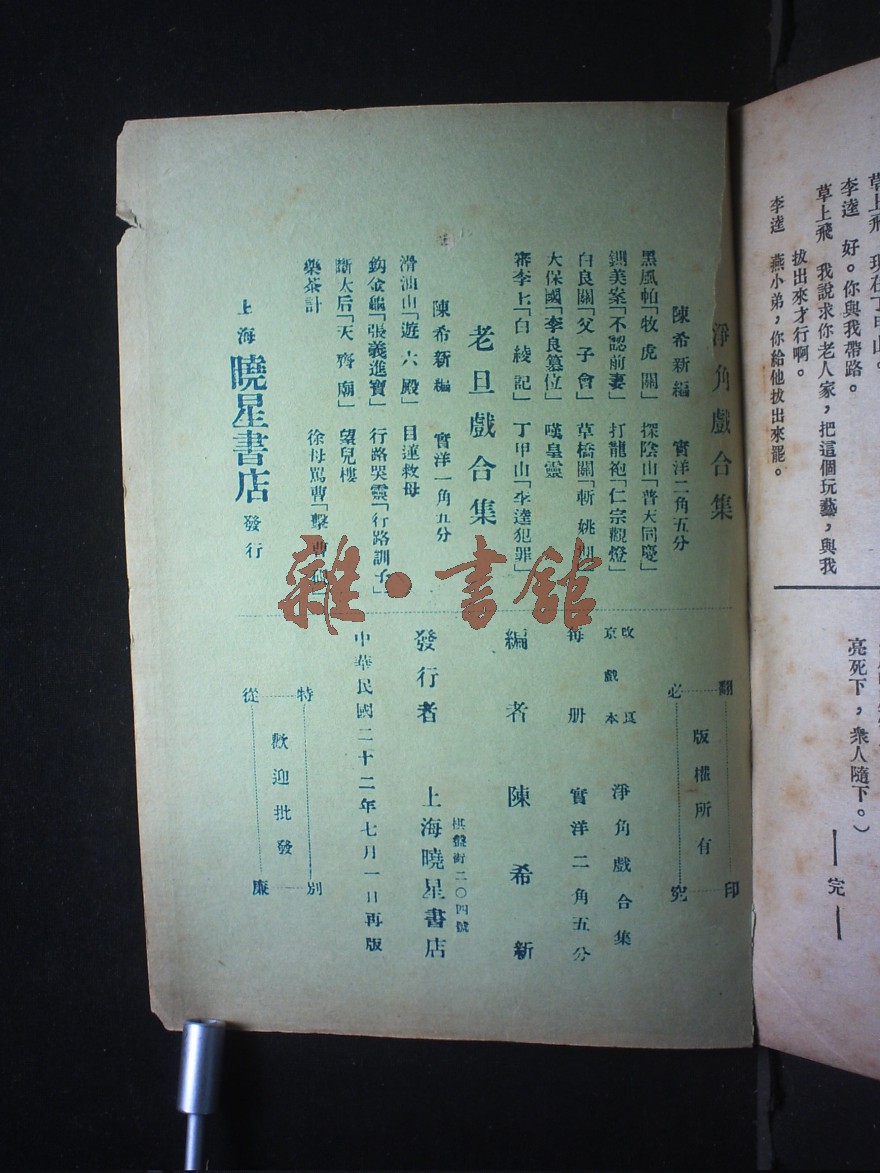 草上飛 現在丁甲山。
李逵 好。你與我帶路。
草上飛 我說求你老人家，把這個玩藝，與我
拔出來才行啊。
李逵 燕小弟，你給他拔出來罷。
亮死下，衆人隨下。）
——完——
淨角戲合集
陳希新編 實洋二角五分
黑風帕「牧虎關」 探陰山「普天同慶」
鍘美案「不認前妻」 打龍袍「仁宗觀燈」
白良關「父子會」 草橋關「斬姚期」
大保國「李良篡位」 嘆皇靈
審李七「白綾記」 丁甲山「李逵犯罪」
老旦戲合集
陳希新編 實洋一角五分
滑油山「遊六殿」 目蓮救母
釣金龜「張義進寶」 行路哭靈「行路訓子」
斷太后「天齊廟」 望兒樓
藥茶計 徐母罵曹「擊曹」
上海曉星書店發行
翻印
版權所有
必究
改良
京戲本 淨角戲合集
每册 實洋二角五分
編者 陳希新
棋盤街二〇四號
發行者 上海曉星書店
中華民國二十二年七月一日再版
特別
歡迎批發
從廉
雜·書館